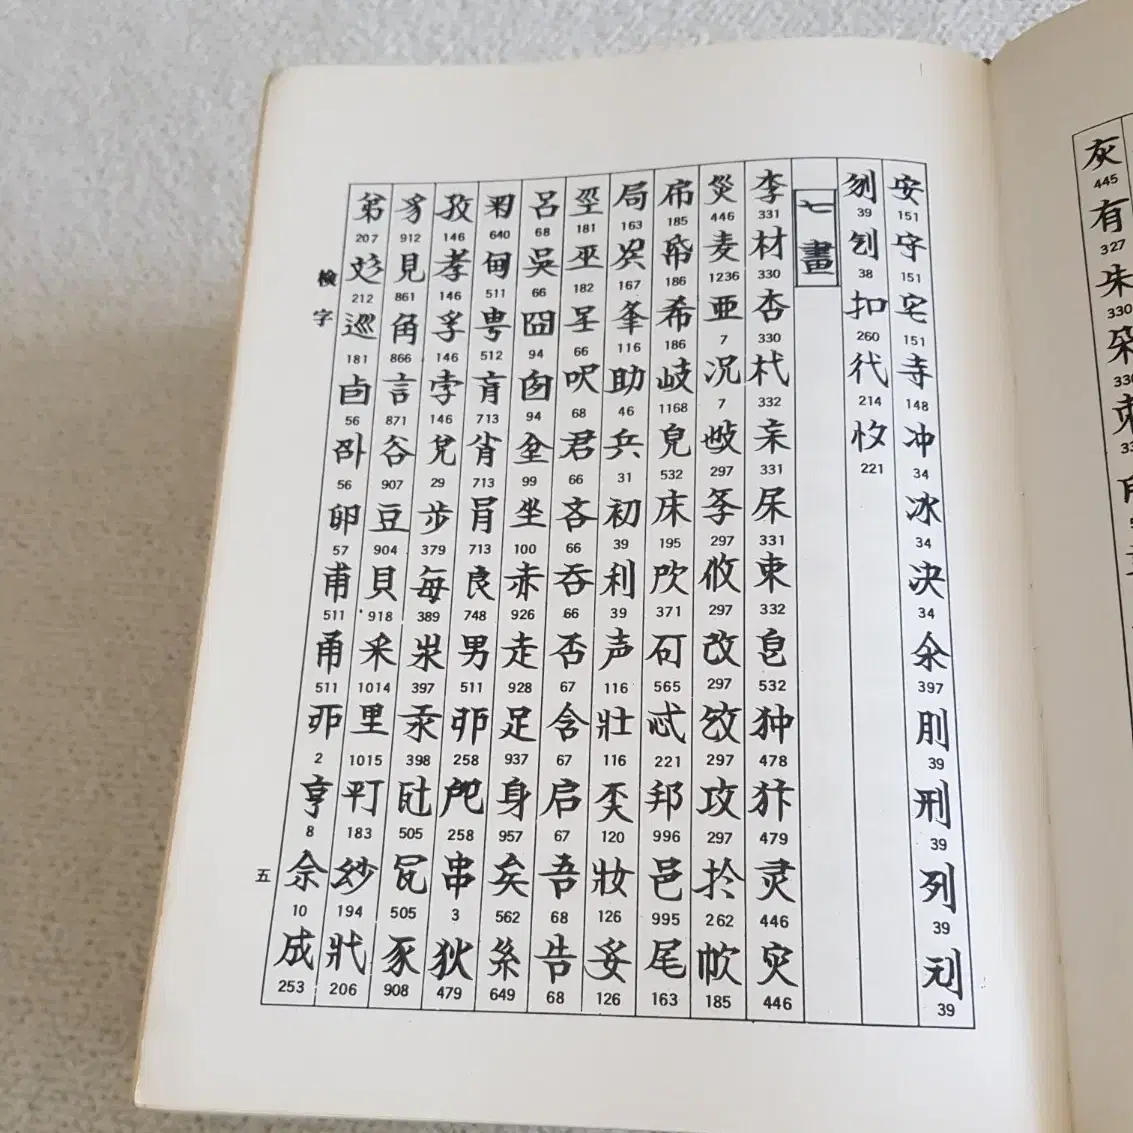 安 151 守 151 宅 151 寺 148 冲 34 冰 34 决 34 氽 397 刖 39 刑 39 列 39 刓 39
39 38 扣 260 代 214 221
七畫
李 331 材 330 杏 330 杙 332 331 331 東 332 皂 532 狆 478 犴 479 灵 446 灾 446
災 446 麦 1236 亜 7 况 7 297 297 攸 297 改 297 297 攻 297 扵 262 185
185 186 希 186 岐 1168 皃 532 床 195 欣 371 565 忒 221 邦 996 邑 995 尾 163
局 163 167 夆 116 助 46 兵 31 初 39 利 39 声 116 壯 116 120 妝 126 妥 126
巠 181 巫 182 呈 66 呎 68 君 66 吝 66 吞 66 否 67 含 67 启 67 吾 68 告 68
呂 68 吳 66 囧 94 囱 94 坌 99 坐 100 赤 926 走 928 足 937 身 957 矣 562 糸 649
640 甸 511 甹 512 肓 713 肖 713 肙 713 良 748 男 511 258 258 串 3 狄 479
孜 146 孝 146 孚 146 孛 146 兌 29 步 379 每 389 397 汞 398 505 505 479
豸 912 見 861 角 866 言 871 谷 907 豆 904 貝 918 釆 1014 里 1015 183 194 豕 908
弟 207 212 巡 181 卣 56 卲 56 卵 57 甫 511 甬 511 2 亨 8 佘 10 成 253 206
檢字
五
灰 445
有 327
朱 330
朵 330